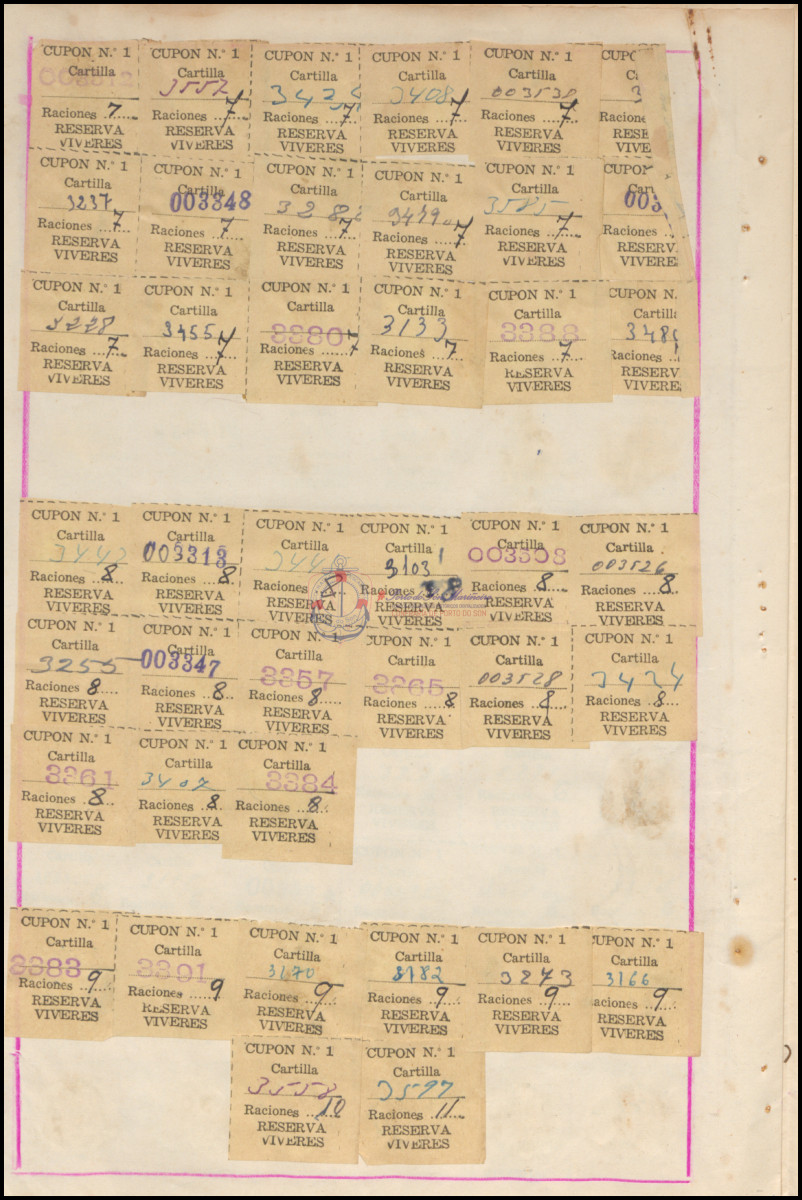 CUPON N.° 1 CUPON N.° 1 CUPON N.° 1 CUPON N.° 1 CUPON N.° 1 CUPO
Cartilla Cartilla Cartilla Cartilla Cartilla C
3552 342 3408 003530 3
Raciones 7 Raciones 7 Raciones 7 Raciones 7 Raciones 7 Racione
RESERVA RESERVA RESERVA RESERVA RESERVA RESE
VIVERES VIVERES VIVERES VIVERES VIVERES VIVE
CUPON N.° 1 CUPON N.° 1 CUPON N.° 1 CUPON N.° 1 CUPON N.° 1 CUPO
Cartilla Cartilla Cartilla Cartilla Cartilla Cart
3237 003348 328 3479 3585 003
Raciones 7 Raciones 7 Raciones 7 Raciones 7 Raciones 7 Raciones
RESERVA RESERVA RESERVA RESERVA RESERVA RESERV
VIVERES VIVERES VIVERES VIVERES VIVERES VIVERE
CUPON N.° 1 CUPON N.° 1 CUPON N.° 1 CUPON N.° 1 CUPON N.° 1 CUPON N.
Cartilla Cartilla Cartilla Cartilla Cartilla Cartill
3228 3455 3380 3133 3388 348
Raciones 7 Raciones 7 Raciones 7 Raciones 7 Raciones 7 Raciones
RESERVA RESERVA RESERVA RESERVA RESERVA RESERV
VIVERES VIVERES VIVERES VIVERES VIVERES VIVERE
CUPON N.° 1 CUPON N.° 1 CUPON N.° 1 CUPON N.° 1 CUPON N.° 1 CUPON N.° 1
Cartilla Cartilla Cartilla Cartilla Cartilla Cartilla
344 003313 344 3103 003308 003526
Raciones 8 Raciones 8 Raciones 8 Raciones 8 Raciones 8 Raciones 8
RESERVA RESERVA RESERVA RESERVA RESERVA RESERVA
VIVERES VIVERES VIVERES VIVERES VIVERES VIVERES
CUPON N.° 1 CUPON N.° 1 CUPON N.° 1 CUPON N.° 1 CUPON N.° 1 CUPON N.° 1
Cartilla Cartilla Cartilla Cartilla Cartilla Cartilla
3255 003347 3357 3365 003528 3434
Raciones 8 Raciones 8 Raciones 8 Raciones 8 Raciones 8 Raciones 8
RESERVA RESERVA RESERVA RESERVA RESERVA RESERVA
VIVERES VIVERES VIVERES VIVERES VIVERES VIVERES
CUPON N.° 1 CUPON N.° 1 CUPON N.° 1
Cartilla Cartilla Cartilla
3361 3407 3384
Raciones 8 Raciones 8 Raciones 8
RESERVA RESERVA RESERVA
VIVERES VIVERES VIVERES
CUPON N.° 1 CUPON N.° 1 CUPON N.° 1 CUPON N.° 1 CUPON N.° 1 CUPON N.° 1
Cartilla Cartilla Cartilla Cartilla Cartilla Cartilla
3383 3391 3170 3182 3273 3166
Raciones 9 Raciones 9 Raciones 9 Raciones 9 Raciones 9 aciones 9
RESERVA RESERVA RESERVA RESERVA RESERVA RESERVA
VIVERES VIVERES VIVERES VIVERES VIVERES VIVERES
CUPON N.° 1 CUPON N.° 1
Cartilla Cartilla
3558 3597
Raciones 10 Raciones 11
RESERVA RESERVA
VIVERES VIVERES